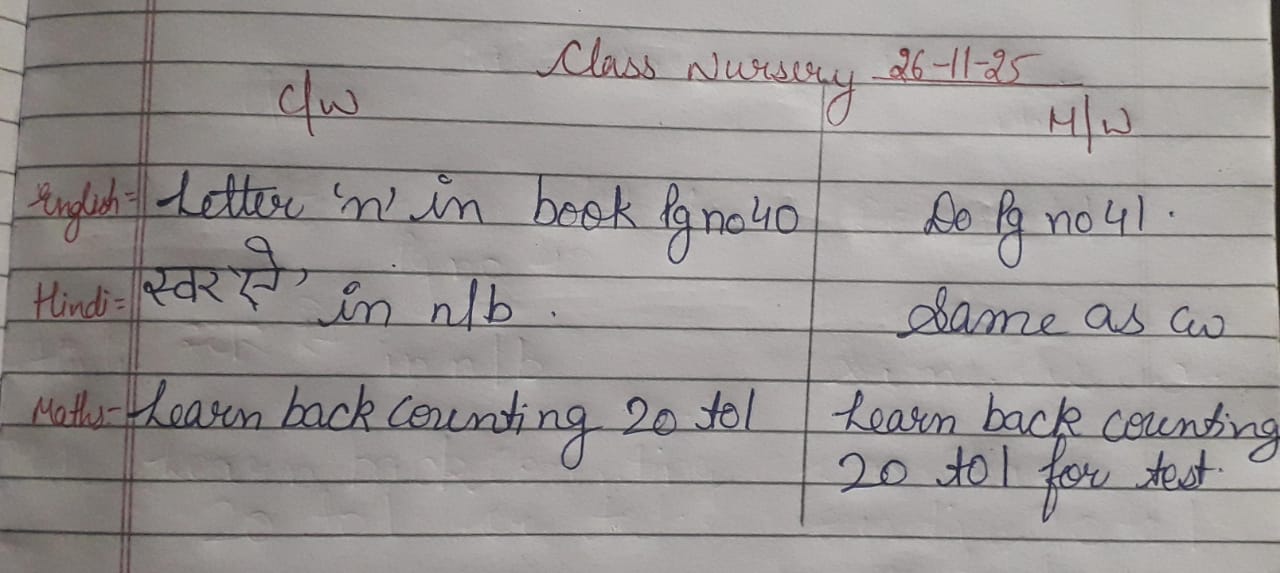 Class Nursery 26-11-25
C/W H/W
English= Letter 'n' in book Pg no 40 Do Pg no 41.
Hindi= स्वर in n/b. Same as cw
Maths- Learn back counting 20 to 1 Learn back counting
20 to 1 for test.